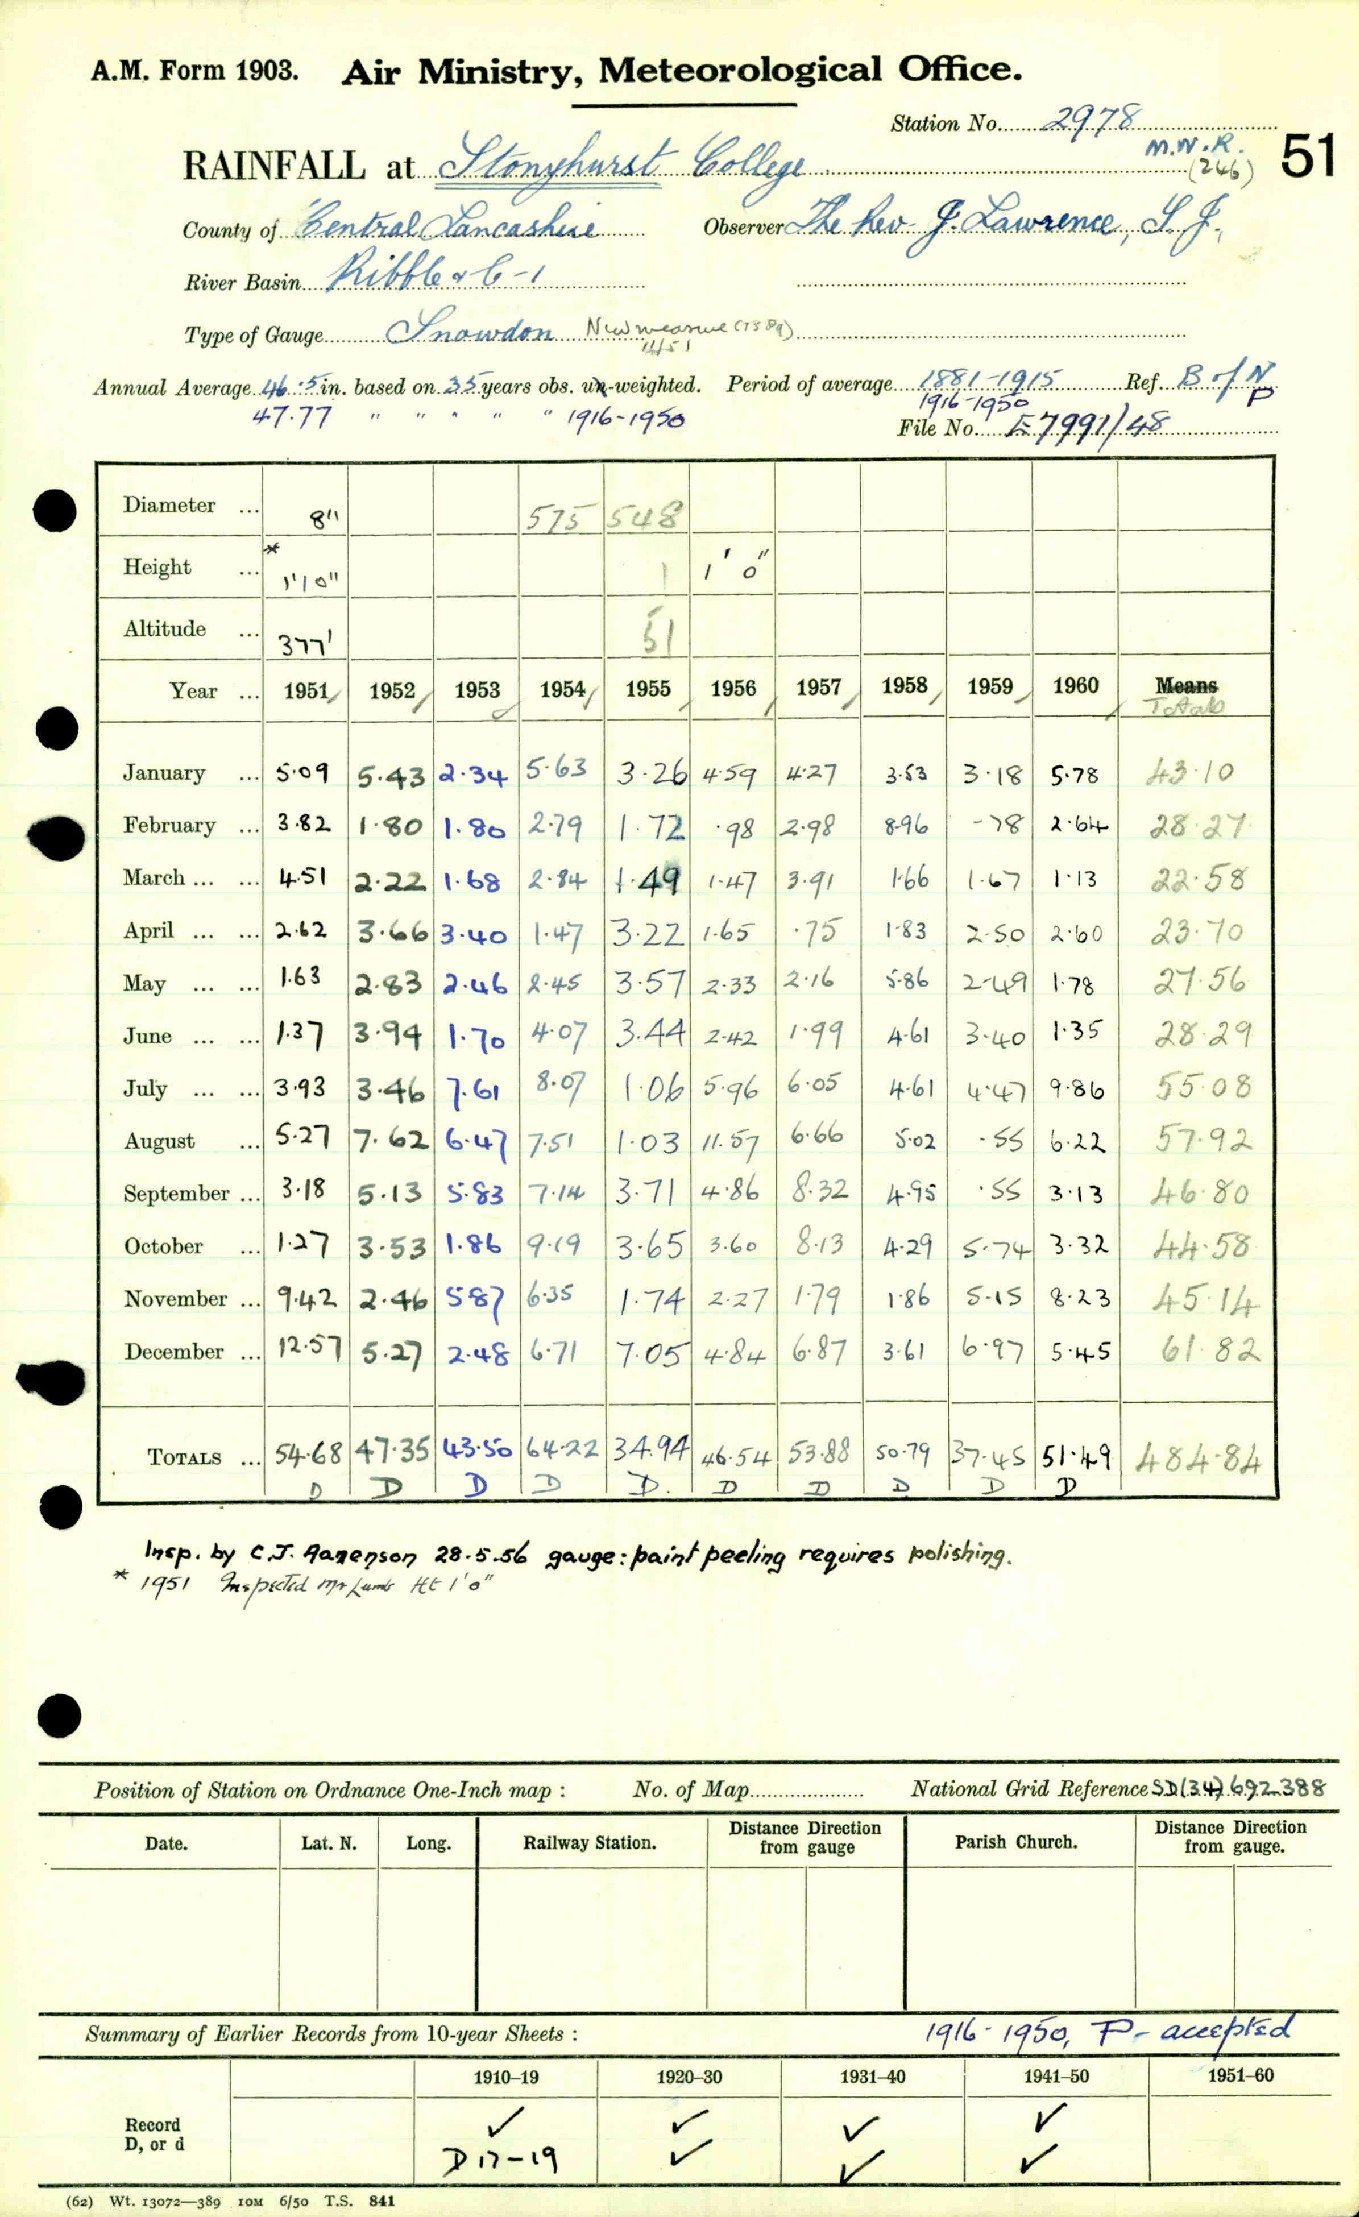 A.M. Form 1903. Air Ministry, Meteorological Office.
Station No. 2978
M.W.R. (246)
51
RAINFALL at Stonyhurst College
County of Central Lancashire Observer The Rev J. Lawrence, S.J.
River Basin Ribble & C-1
Type of Gauge Snowdon New measure
11/51
Annual Average 46.5 in. based on 35 years obs. un-weighted. Period of average 1881-1915 Ref. B of N P
47.77 " " " " " 1916-1950 1916-1950
File No. E7991/48
Diameter ... 8" 575 548
Height ... * 1'10" 1 1' 0"
Altitude ... 377' 51
Year ... 1951 1952 1953 1954 1955 1956 1957 1958 1959 1960 Means Totals
January ... 5.09 5.43 2.34 5.63 3.26 4.59 4.27 3.53 3.18 5.78 43.10
February ... 3.82 1.80 1.80 2.79 1.72 .98 2.98 8.96 .78 2.64 28.27
March ... ... 4.51 2.22 1.68 2.84 1.49 1.47 3.91 1.66 1.67 1.13 22.58
April ... ... 2.62 3.66 3.40 1.47 3.22 1.65 .75 1.83 2.50 2.60 23.70
May ... ... 1.63 2.83 2.46 2.45 3.57 2.33 2.16 5.86 2.49 1.78 27.56
June ... ... 1.37 3.94 1.70 4.07 3.44 2.42 1.99 4.61 3.40 1.35 28.29
July ... ... 3.93 3.46 7.61 8.07 1.06 5.96 6.05 4.61 4.47 9.86 55.08
August ... 5.27 7.62 6.47 7.51 1.03 11.57 6.66 5.02 .55 6.22 57.92
September ... 3.18 5.13 5.83 7.14 3.71 4.86 8.32 4.95 .55 3.13 46.80
October ... 1.27 3.53 1.86 9.19 3.65 3.60 8.13 4.29 5.74 3.32 44.58
November ... 9.42 2.46 5.87 6.35 1.74 2.27 1.79 1.86 5.15 8.23 45.14
December ... 12.57 5.27 2.48 6.71 7.05 4.84 6.87 3.61 6.97 5.45 61.82
TOTALS ... 54.68 47.35 43.50 64.22 34.94 46.54 53.88 50.79 37.45 51.49 484.84
D D D D D. D D D D D
Insp. by C.J. 28.5.56 gauge: paint peeling requires polishing.
* 1951 Inspected Mr Lumb Ht 1'0"
Position of Station on Ordnance One-Inch map : No. of Map National Grid Reference SD(34) 692388
Date. Lat. N. Long. Railway Station. Distance Direction from gauge Parish Church. Distance Direction from gauge.
Summary of Earlier Records from 10-year Sheets : 1916-1950, P- accepted
1910–19 1920–30 1931–40 1941–50 1951–60
Record ✓ ✓ ✓ ✓
D, or d D 17-19 ✓ ✓ ✓
(62) Wt. 13072—389 10M 6/50 T.S. 841